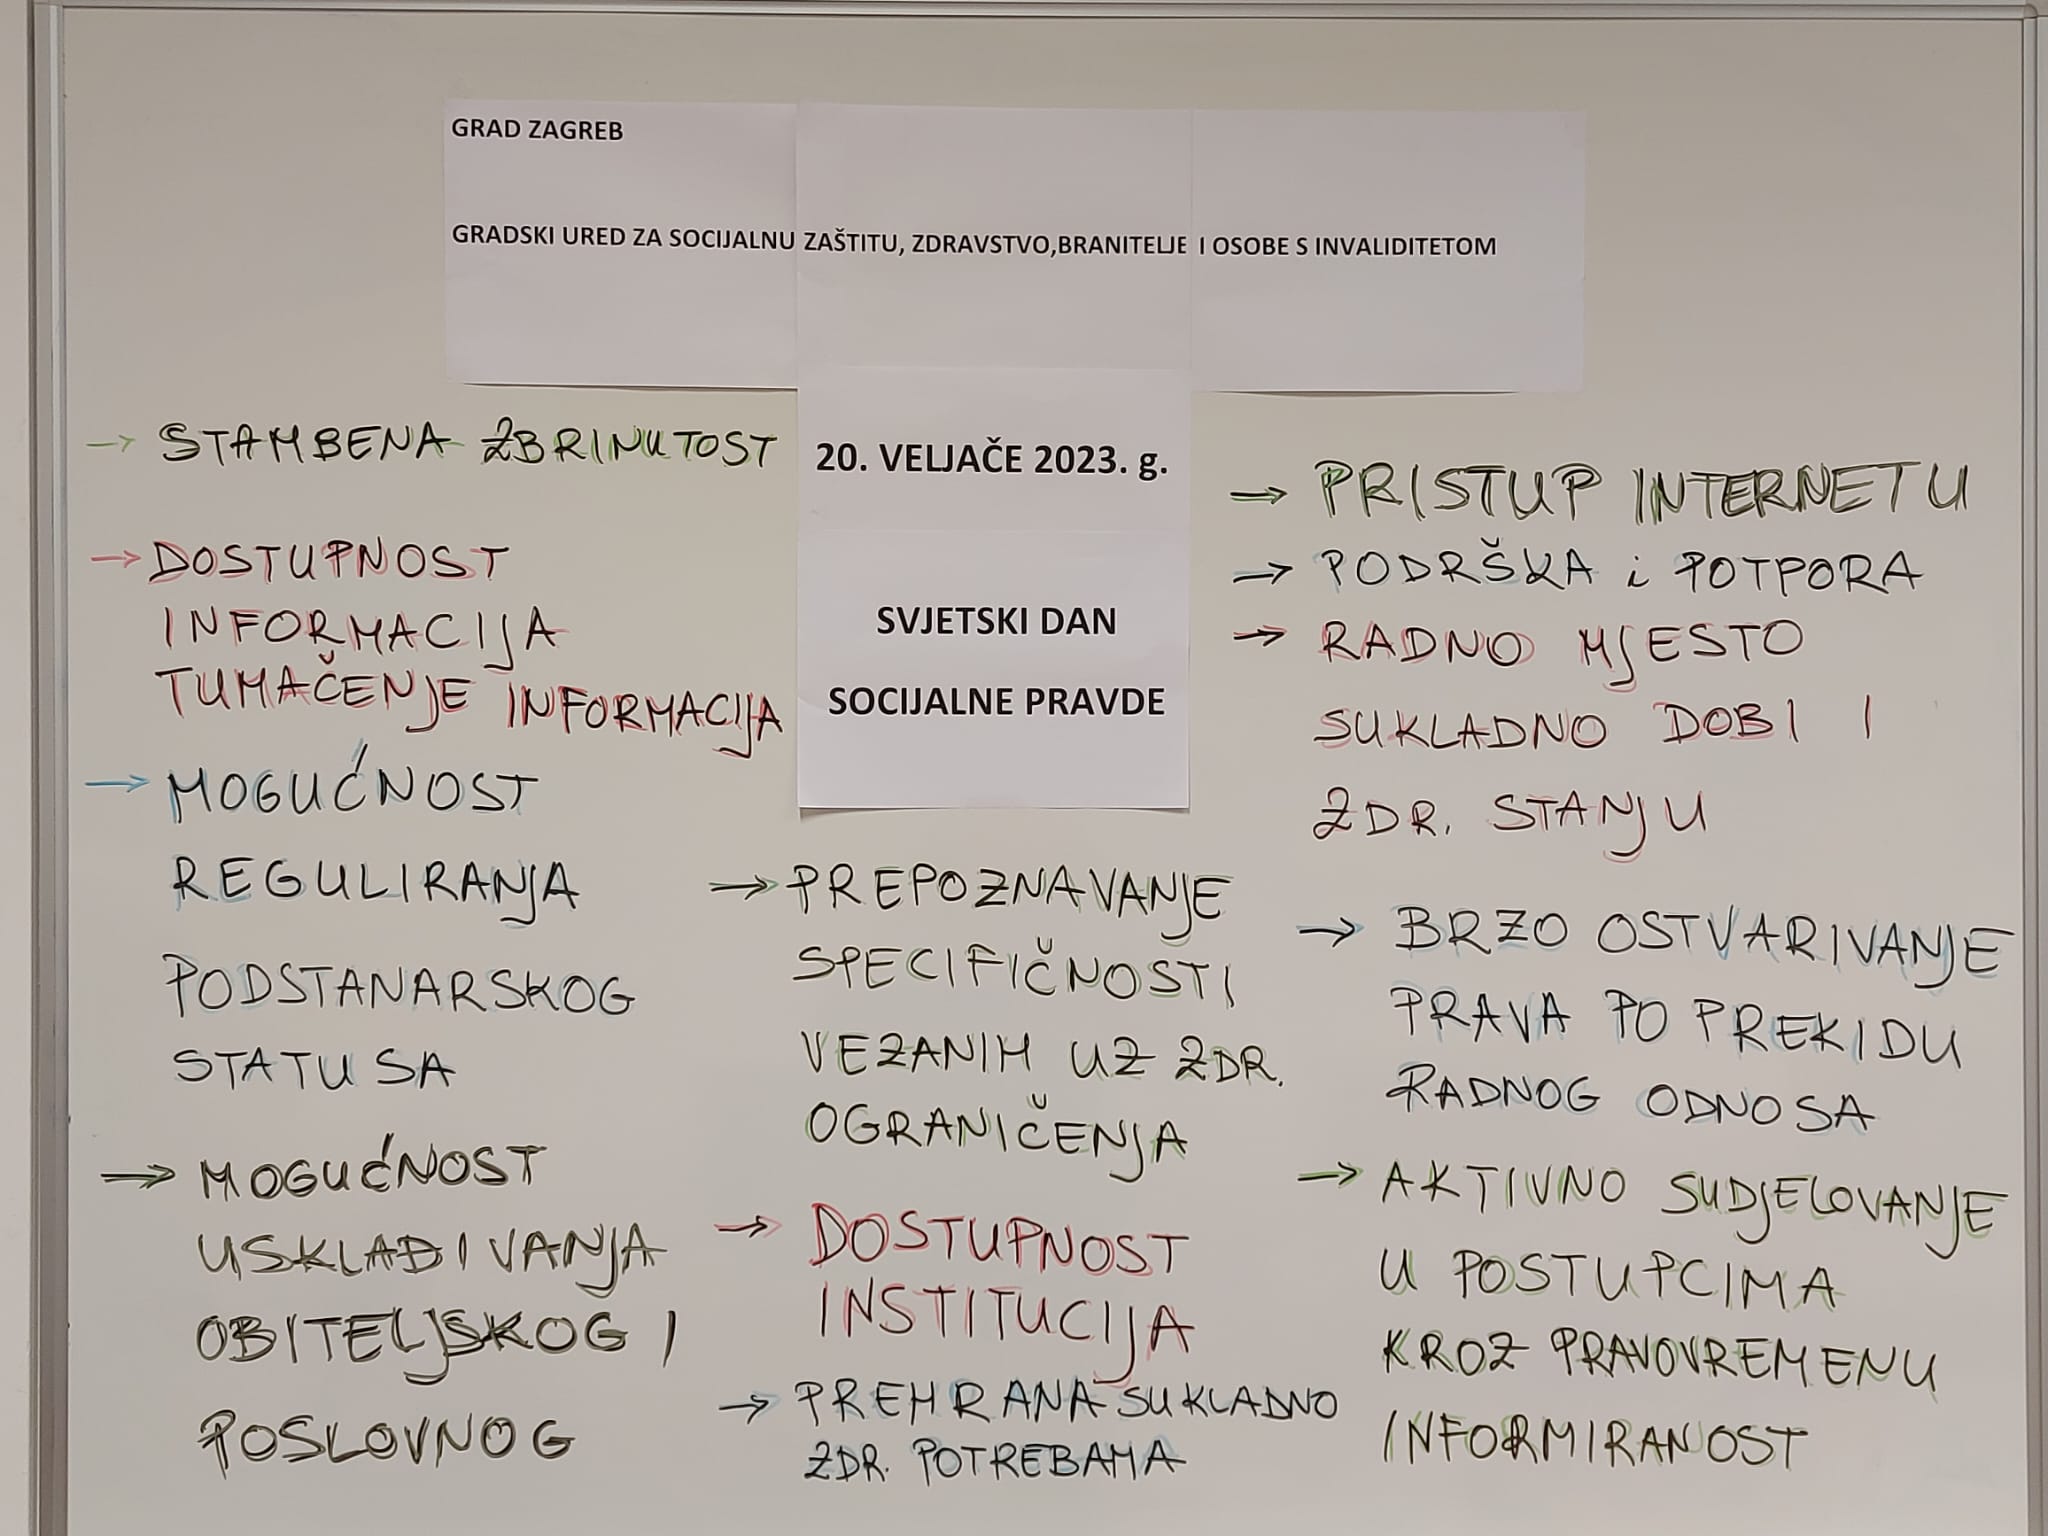 GRAD ZAGREB
GRADSKI URED ZA SOCIJALNU ZAŠTITU, ZDRAVSTVO,BRANITELJE I OSOBE S INVALIDITETOM
20. VELJAČE 2023. g.
SVJETSKI DAN
SOCIJALNE PRAVDE
→ STAMBENA ZBRINUTOST
→ DOSTUPNOST
INFORMACIJA
TUMAČENJE INFORMACIJA
→ MOGUĆNOST
REGULIRANJA
PODSTANARSKOG
STATUSA
→ MOGUĆNOST
USKLAĐIVANJA
OBITELJSKOG I
POSLOVNOG
→ PREPOZNAVANJE
SPECIFIČNOSTI
VEZANIH UZ ZDR.
OGRANIČENJA
→ DOSTUPNOST
INSTITUCIJA
→ PREHRANA SUKLADNO
ZDR. POTREBAMA
→ PRISTUP INTERNETU
→ PODRŠKA i POTPORA
→ RADNO MJESTO
SUKLADNO DOBI I
ZDR. STANJU
→ BRZO OSTVARIVANJE
PRAVA PO PREKIDU
RADNOG ODNOSA
→ AKTIVNO SUDJELOVANJE
U POSTUPCIMA
KROZ PRAVOVREMENU
INFORMIRANOST